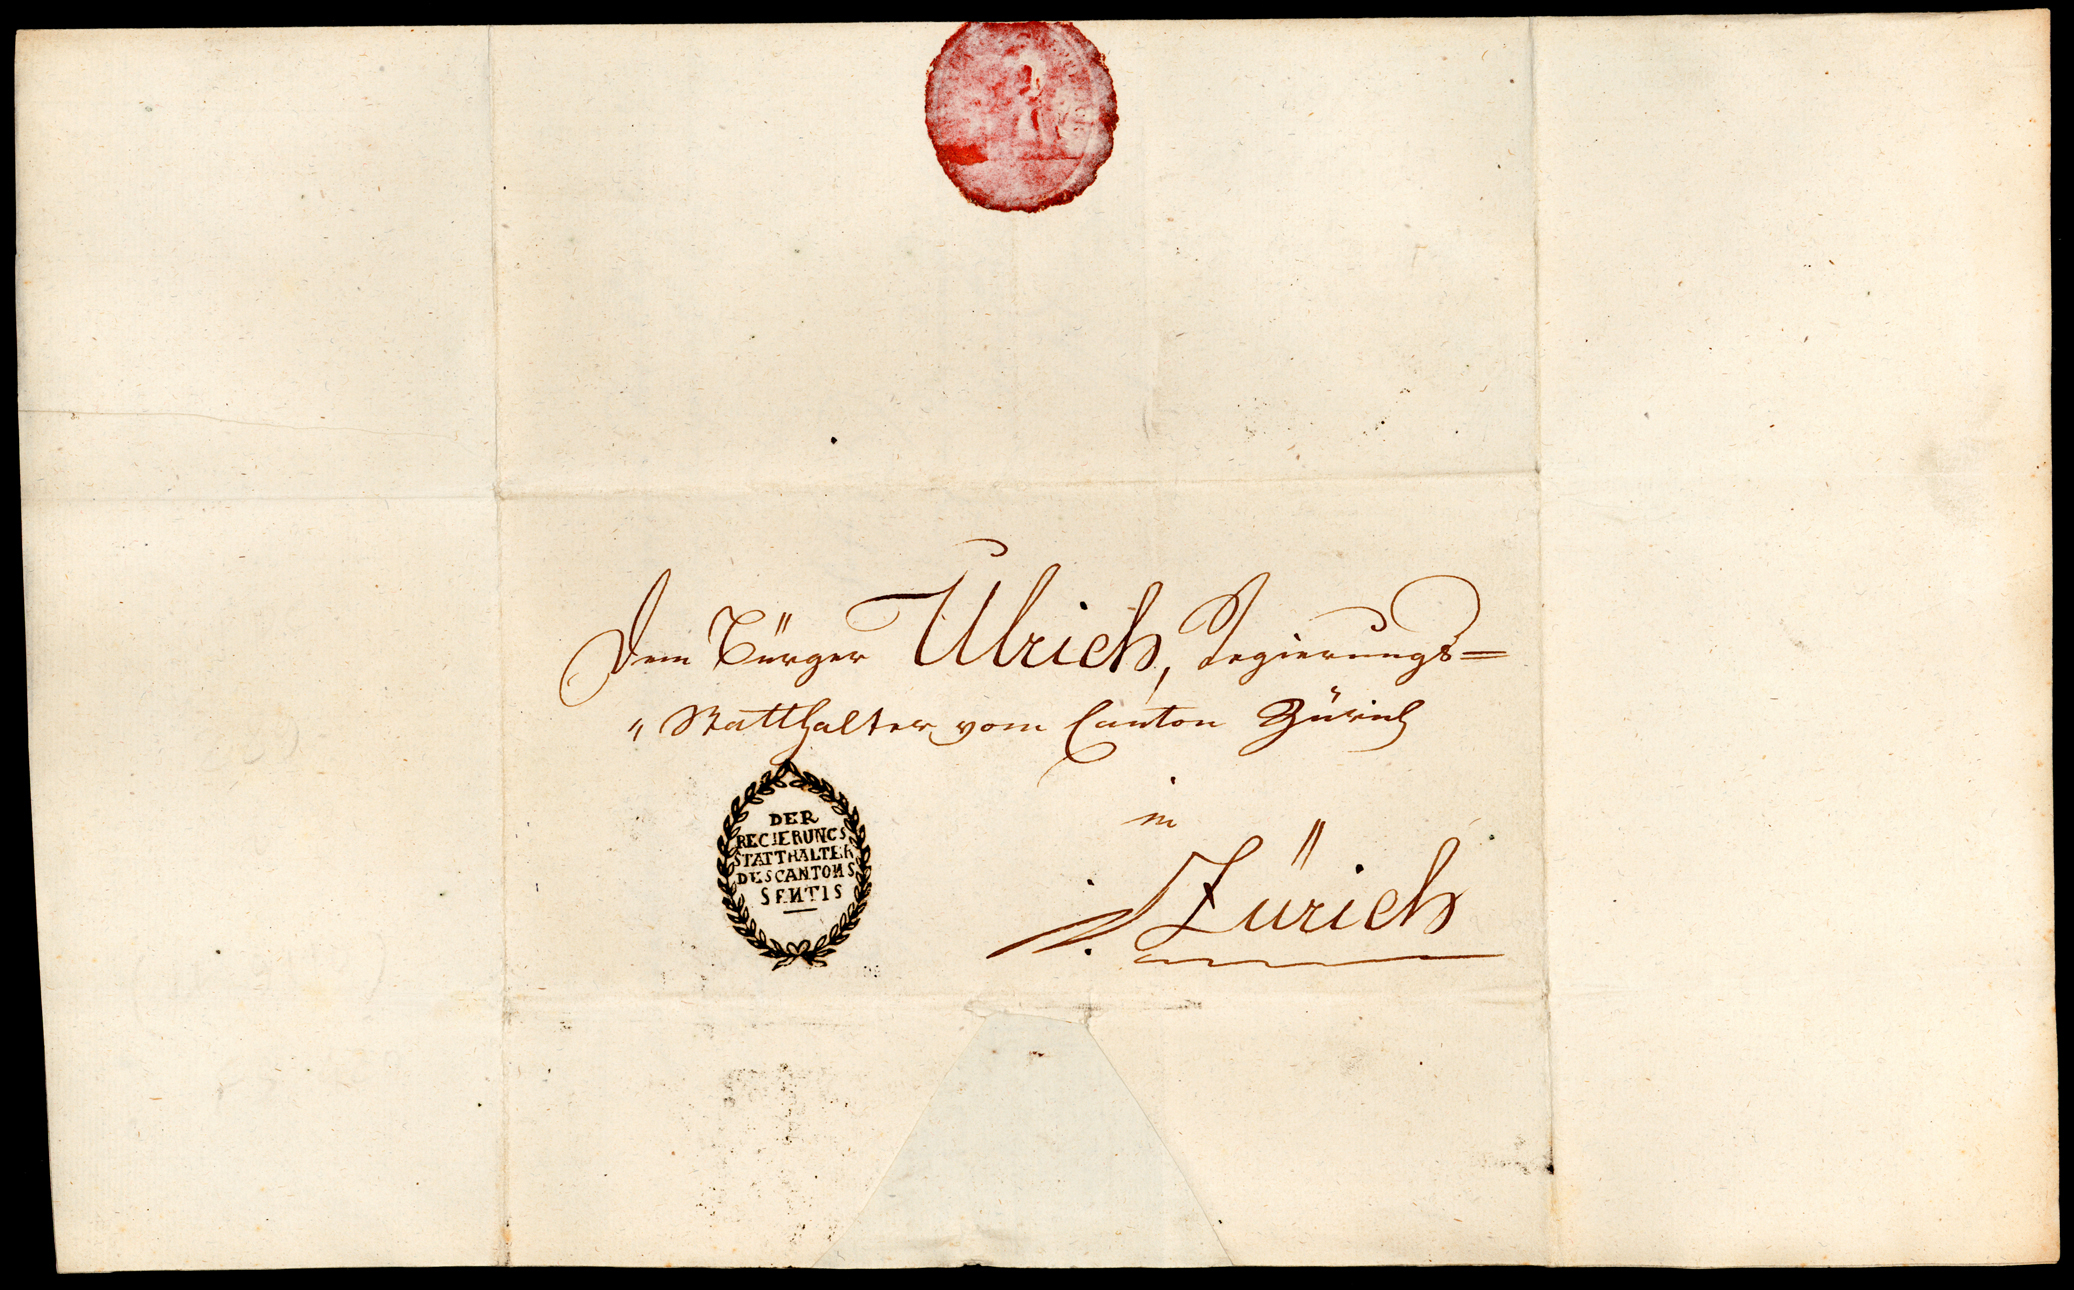 Dem Bürger Ulrich, Regierungs=
„ Statthalter vom Canton Zürich
in
Zürich
DER
REGIERUNGS
STATTHALTER
DES CANTONS
SENTIS